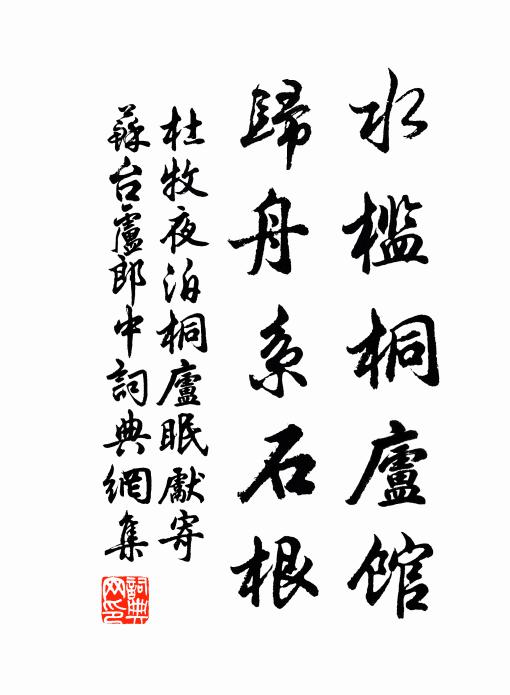 水檻桐廬館
歸舟系石根
杜牧夜泊桐廬眠獻寄
蘇台盧郎中詞典網集
詞典网印